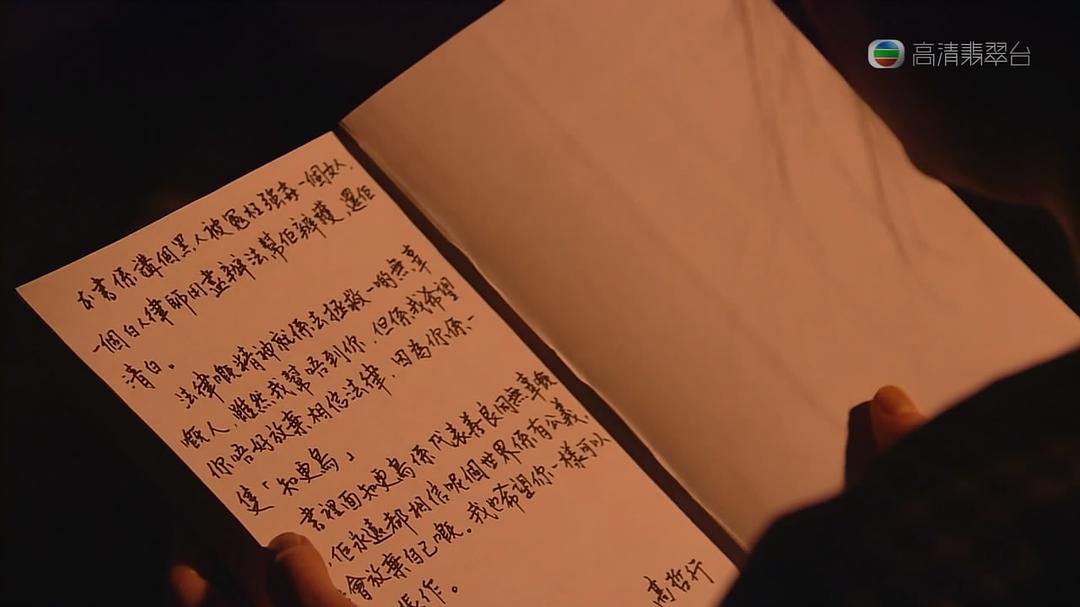 高清翡翠台
本書係講個黑人被冤枉強姦一個女人,
一個白人律師用盡辦法幫佢辯護,還佢
清白。
法律嘅精神就係去拯救一啲無辜
嘅人,雖然我幫唔到你,但係我希望
你唔好放棄相信法律,因為你係一
隻「知更鳥」
書裡面知更鳥係代表善良同無辜
佢永遠都相信呢個世界係有公義,
會放棄自己嘅。我也希望你一樣可以
作。
高哲行